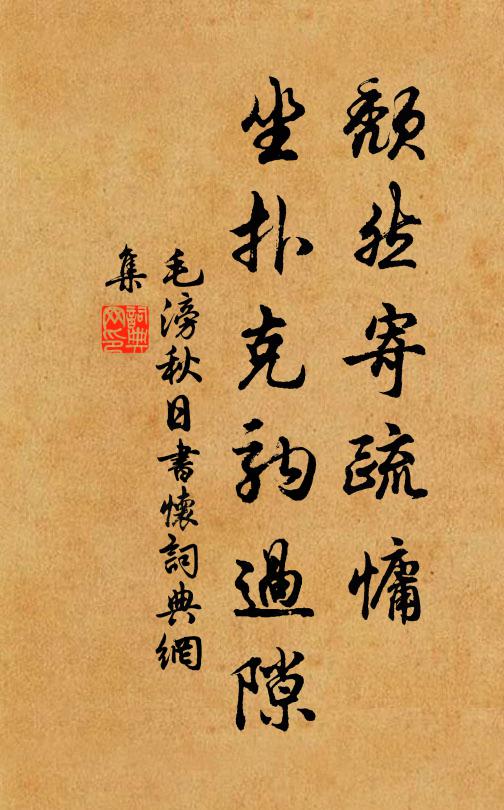 頹然寄疏慵
坐扑克駒過隙
毛滂秋日書懷詞典網
集
詞典
网印